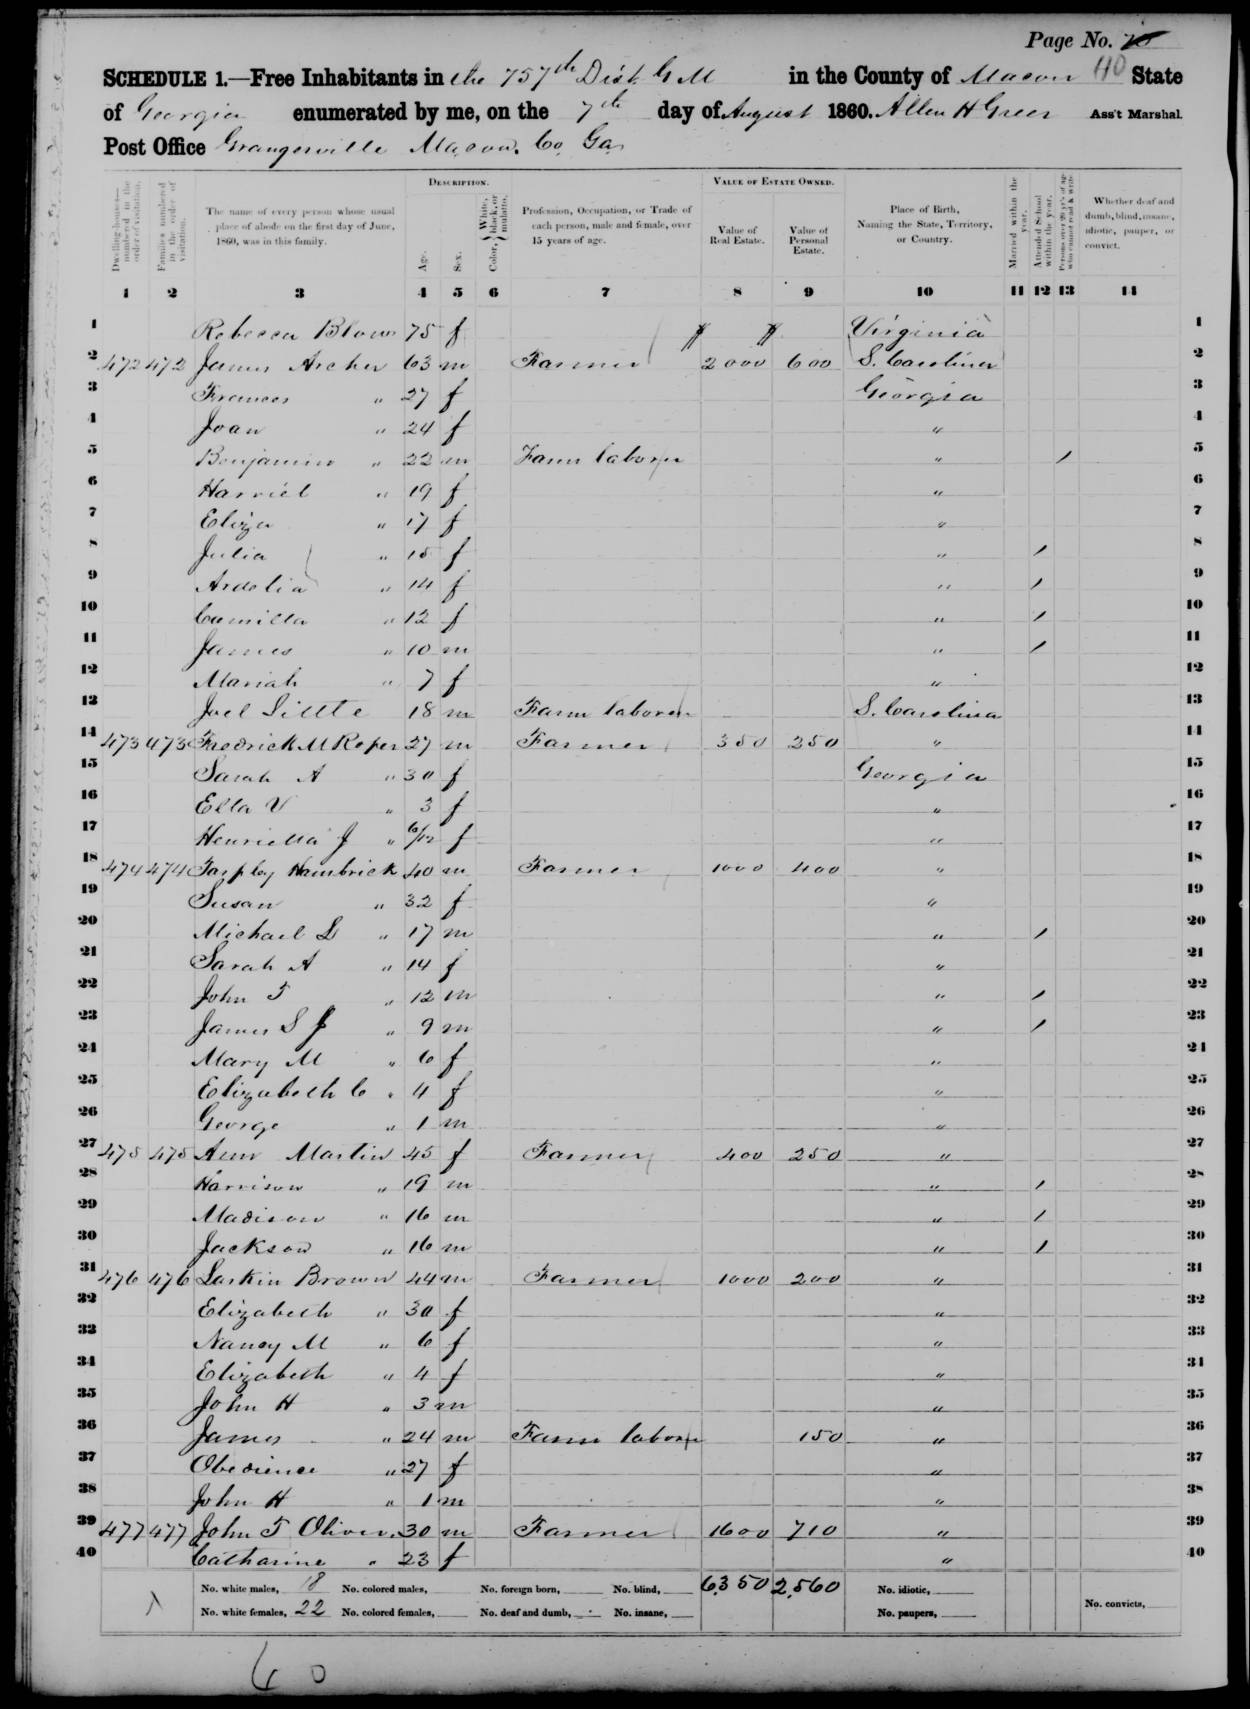 Page No. 70
40
SCHEDULE 1.—Free Inhabitants in the 757th Dist G M in the County of Macon State
of Georgia enumerated by me, on the 7th day of August 1860. Allen H Greer Ass't Marshal.
Post Office Grangerville Macon. Co. Ga.
DESCRIPTION. VALUE OF ESTATE OWNED.
Dwelling-houses—numbered in the order of visitation. Families numbered in the order of visitation. The name of every person whose usual place of abode on the first day of June, 1860, was in this family. Age. Sex. Color, { White, black, or mulatto. Profession, Occupation, or Trade of each person, male and female, over 15 years of age. Value of Real Estate. Value of Personal Estate. Place of Birth, Naming the State, Territory, or Country. Married within the year. Attended School within the year. Persons over 20 y'rs of age who cannot read & write. Whether deaf and dumb, blind, insane, idiotic, pauper, or convict.
1 2 3 4 5 6 7 8 9 10 11 12 13 14
1 Rebecca Blow 75 f Virginia 1
2 472 472 James Archer 63 m Farmer 2000 600 S. Carolina 2
3 Frances " 27 f Georgia 3
4 Joan " 24 f " 4
5 Benjamin " 22 m Farm laborer " / 5
6 Harriet " 19 f " 6
7 Eliza " 17 f " 7
8 Julia " 15 f " / 8
9 Ardelia " 14 f " / 9
10 Camilla " 12 f " / 10
11 James " 10 m " / 11
12 Mariah " 7 f " 12
13 Joel Little 18 m Farm laborer S. Carolina 13
14 473 473 Fredrick M Roper 27 m Farmer 350 250 " 14
15 Sarah A " 30 f Georgia 15
16 Ella V " 3 f " 16
17 Henrietta J " 6/12 f " 17
18 474 474 Tarpley Hambrick 40 m Farmer 1000 400 " 18
19 Susan " 32 f " 19
20 Michael L " 17 m " / 20
21 Sarah A " 14 f " 21
22 John T " 12 m " / 22
23 James S J " 9 m " / 23
24 Mary M " 6 f " 24
25 Elizabeth C " 4 f " 25
26 George " 1 m " 26
27 475 475 Ann Martin 45 f Farmer 400 250 " 27
28 Harrison " 19 m " / 28
29 Madison " 16 m " / 29
30 Jackson " 16 m " / 30
31 476 476 Larkin Brown 44 m Farmer 1000 200 " 31
32 Elizabeth " 30 f " 32
33 Nancy M " 6 f " 33
34 Elizabeth " 4 f " 34
35 John H " 3 m " 35
36 James " 24 m Farm laborer 150 " 36
37 Obedience " 27 f " 37
38 John H " 1 m " 38
39 477 477 John T Oliver 30 m Farmer 1600 710 " 39
40 Catharine " 23 f " 40
No. white males, 18 No. colored males, No. foreign born, No. blind, 6,350 2,560 No. idiotic,
No. white females, 22 No. colored females, No. deaf and dumb, No. insane, No. paupers, No. convicts,
60